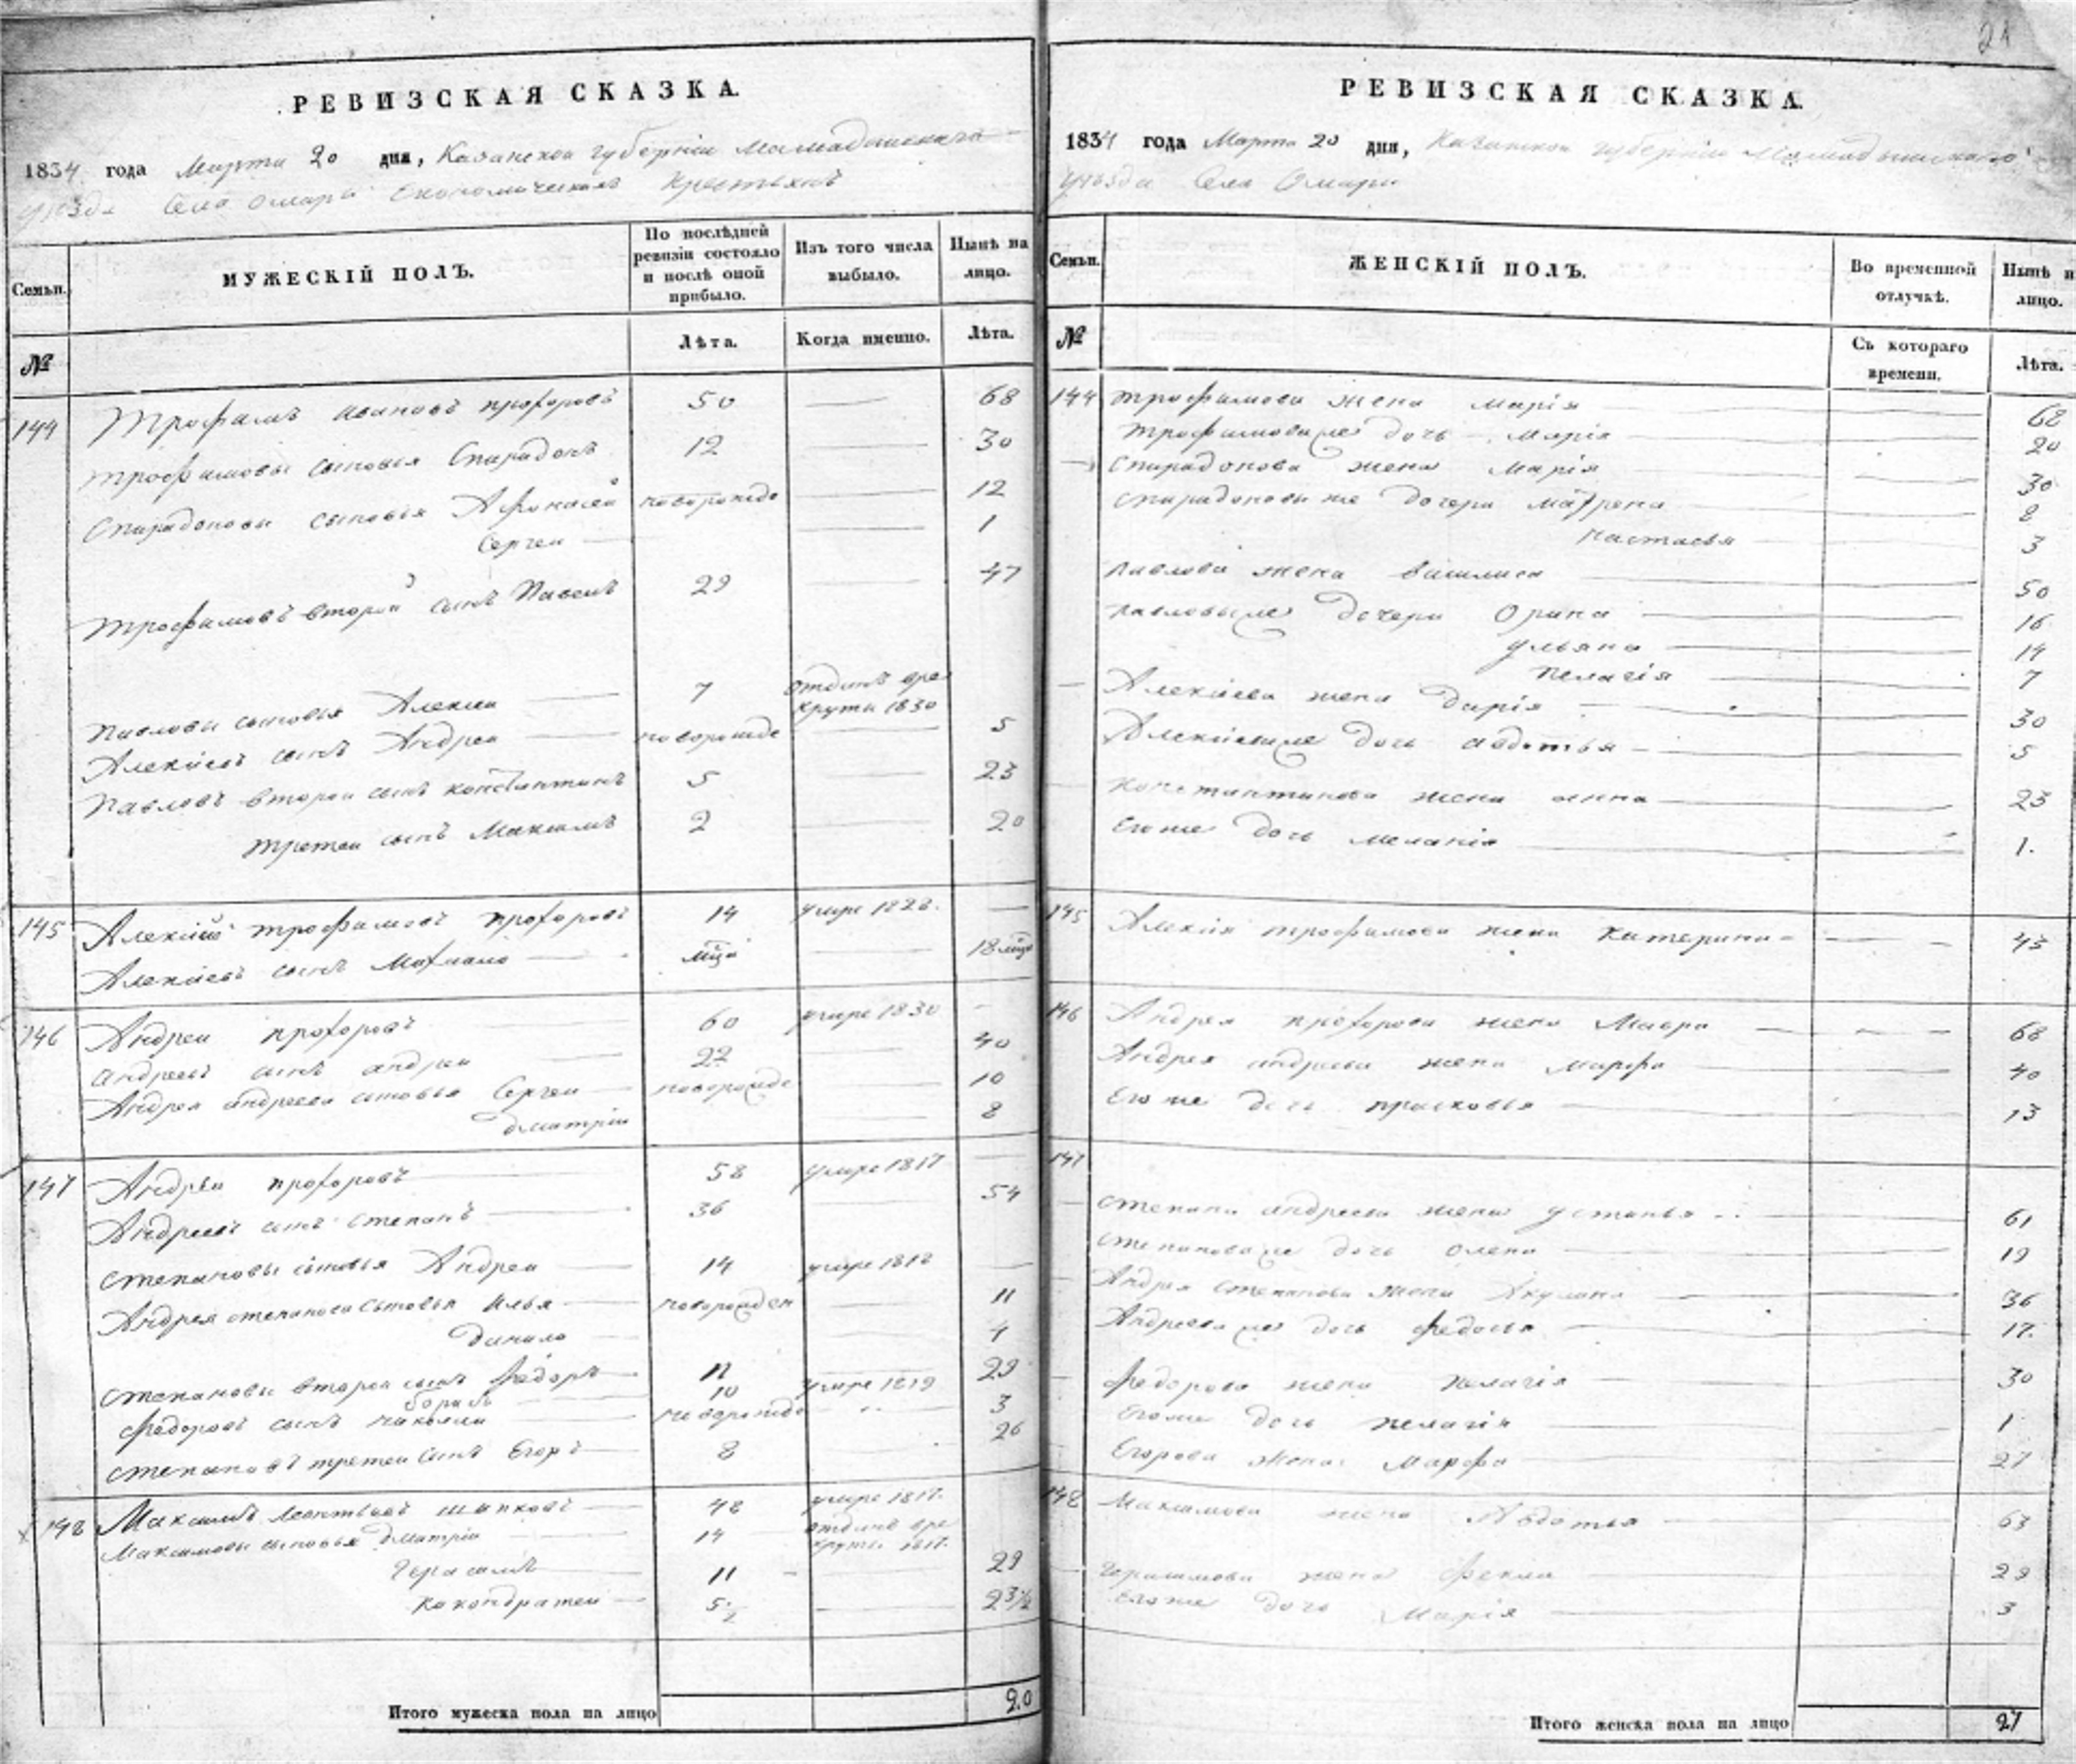 21
РЕВИЗСКАЯ СКАЗКА.
1834 года Марта 20 дня, Казанской губерніи Мамадышскаго
уезда Села Омары Економическихъ Крестьянъ
Семьи.
МУЖЕСКІЙ ПОЛЪ.
По послѣдней ревизіи состояло и послѣ оной прибыло.
Изъ того числа выбыло.
Нынѣ на лицо.
№
Лѣта.
Когда именно.
Лѣта.
144 Трофимъ Ивановъ Прохоровъ 50 68
Трофимовы сыновья Спиридонъ 12 30
Спиридоновы сыновья Афонасей новорожде 12
Сергеи 1
Трофимовъ второй сынъ Павелъ 29 47
Павловы сыновья Алексеи 7 отданъ вре
круты 1830
Алексіевъ сынъ Андреи новорожде 5
Павловъ второи сынъ Константинъ 5 23
третеи сынъ Максимъ 2 20
145 Алексіий Трофимовъ Прохоровъ 14 умре 1828.
Алексіевъ сынъ 18
146 Андреи Прохоровъ 60 умре 1830
Андреевъ сынъ Андреи 22 40
Андрея Андреева сыновья Сергеи новорожде 10
Дмитріи 8
147 Андреи Прохоровъ 58 умре 1817
Андреевъ сынъ Степанъ 36 54
Степановы сыновья Андреи 14 умре 1818
Андрея Степанова сыновья Илья новорожден 11
Данило 4
Степановы второи сынъ Федоръ 11 29
Борисъ 10 умре 1819
Федоровъ сынъ новорожде 3
Степановъ третеи сынъ Егоръ 8 26
148 Максимъ Леонтьевъ Шапковъ 48 умре 1817.
Максимовы сыновья Дмитріи 14 отданъ вре
круты 1817.
Герасимъ 11 29
Кокондратеи 5 1/2 23 1/2
Итого мужеска пола на лицо 20
РЕВИЗСКАЯ СКАЗКА.
1834 года Марта 20 дня, Казанской губерніи Мамадышскаго
уезда Села Омары
Семьи.
ЖЕНСКІЙ ПОЛЪ.
Во временной отлучкѣ.
Нынѣ н лицо.
№
Съ котораго времени.
Лѣта.
144 Трофимова жена Марія 68
Трофимова же дочь Марія 20
Спиридонова жена Марія 30
Спиридоновы же дочери Матрена 8
Настасья 3
Павлова жена Василиса 50
Павловы же дочери Орина 16
Ульяна 14
Пелагія 7
Алексіева жена Дарія 30
Алексіева же дочь Авдотья 5
Константинова жена Анна 23
Его же дочь Меланія 1.
145 Алексія Трофимова жена Катерина 43
146 Андрея Прохорова жена Мавра 68
Андрея Андреева жена Марфа 40
Его же дочь Прасковья 13
147
Степана Андреева жена Устинья 61
Степанова же дочь Олена 19
Андрея Степанова жена Акулина 36
Андреева же дочь Федосья 17.
Федорова жена Пелагія 30
Его же дочь Пелагія 1
Егорова жена Марфа 27
148 Максимова жена Авдотья 63
Герасимова жена Фекла 29
Его же дочь Марія 3
Итого женска пола на лицо 27